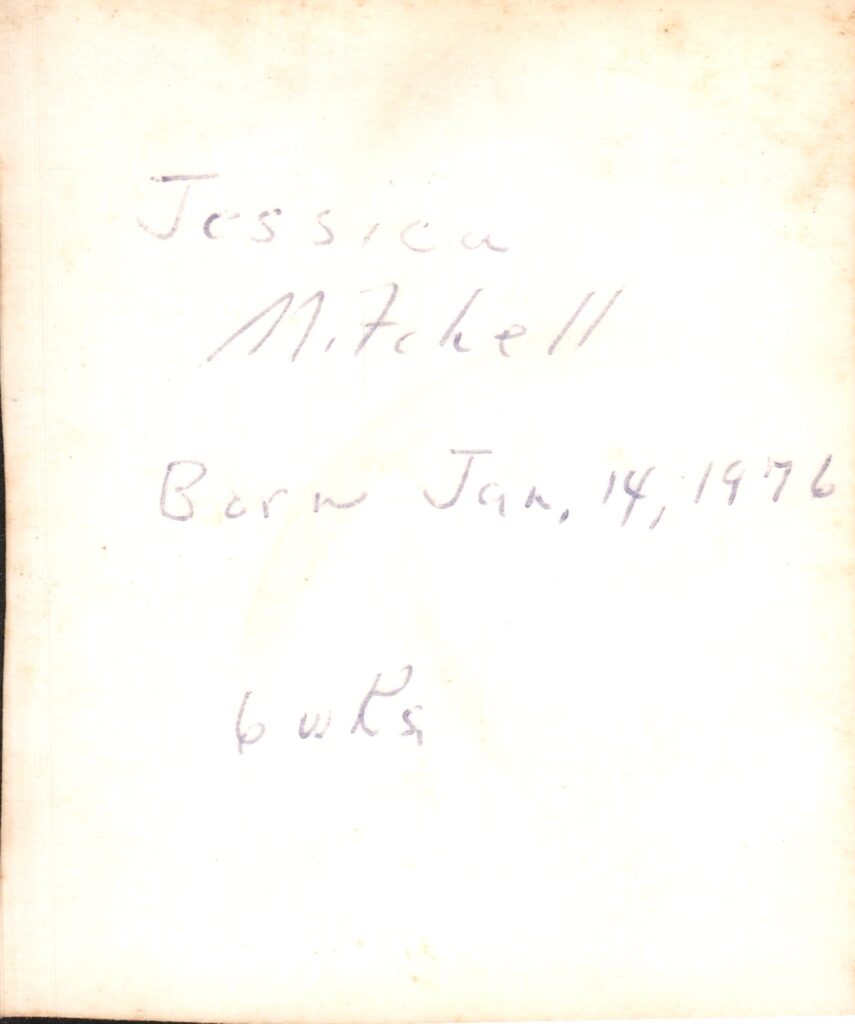 Jessica
Mitchell
Born Jan. 14, 1976
6 wks